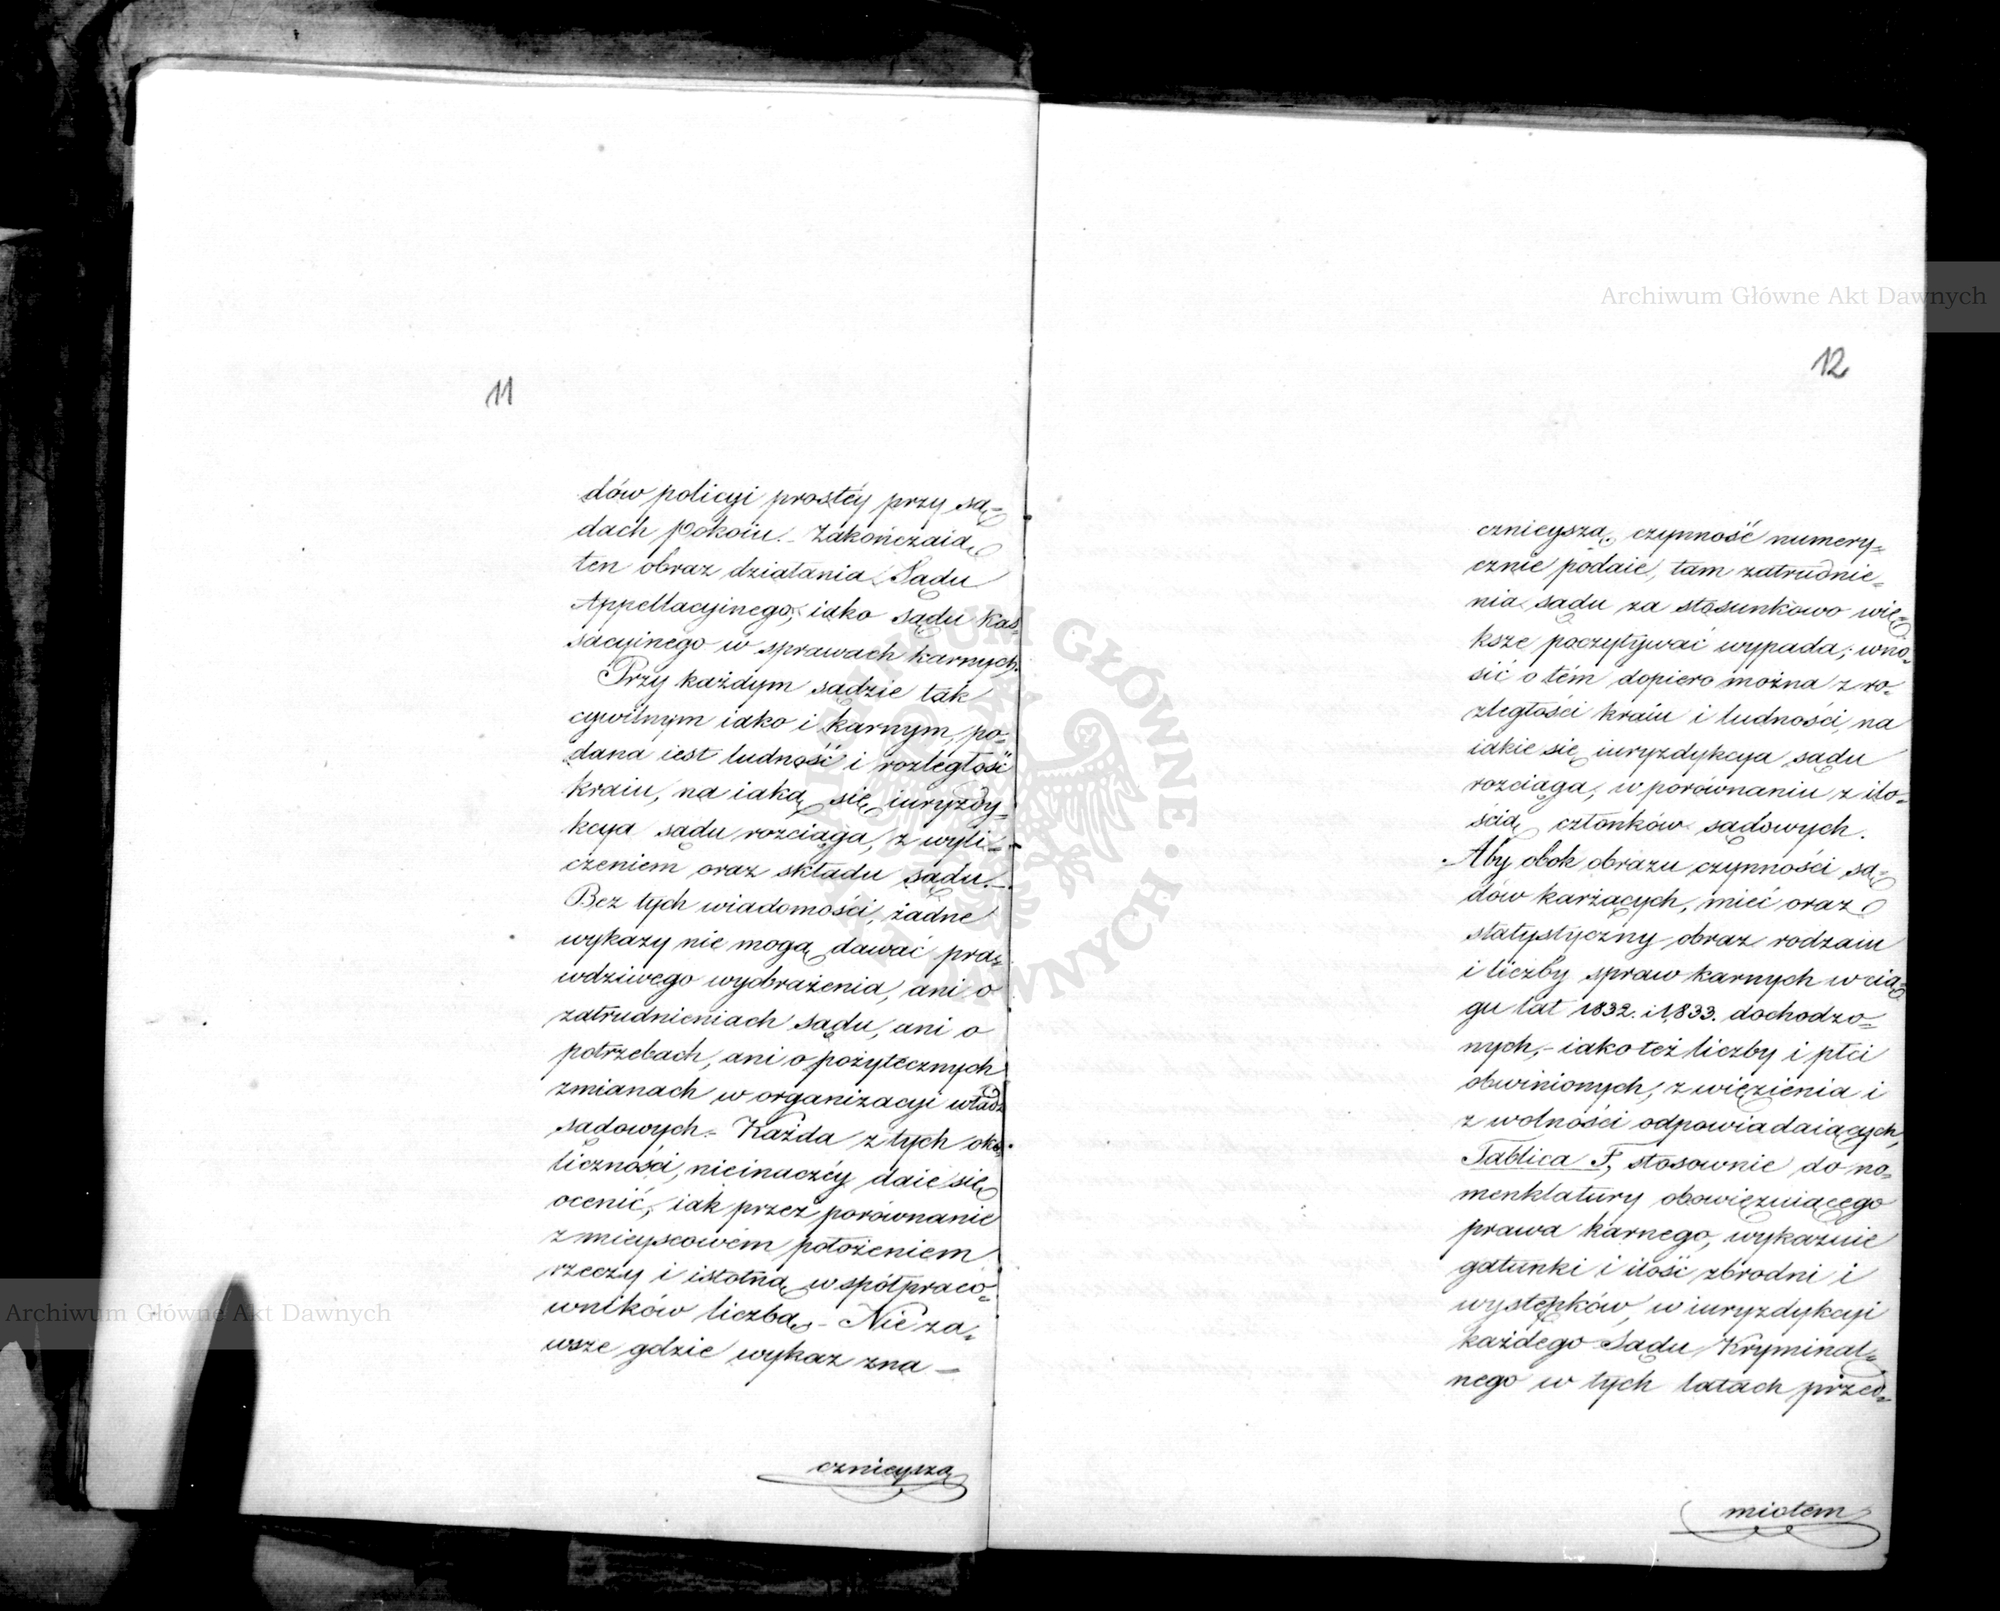 11
dów policyi prostéy przy są=
dach Pokoiu. – Zakończaią
ten obraz działania Sądu
Appellacyinego, iako sądu kas=
sacyinego w sprawach karnych.
Przy każdym sądzie tak
cywilnym iako i karnym, po=
dana iest ludność i rozległość
kraiu, na iaką się iuryzdy=
kcya sądu rozciąga, z wyli=
czeniem oraz składu sądu. –
Bez tych wiadomości, żadne
wykazy nie mogą dawać pra=
wdziwego wyobrażenia, ani o
zatrudnieniach sądu, ani o
potrzebach, ani o pożytecznych
zmianach w organizacyi władz
sądowych. – Każda z tych oko=
liczności, nieinaczéy daie się
ocenić, iak przez porównanie
z mieyscowém położeniem
rzeczy i istotną współpraco=
wników liczbą. – Nie za=
wsze gdzie wykaz zna =
cznieyszą
12
cznieyszą czynność numery=
cznie podaie, tam zatrudnie=
nia sądu za stosunkowo wię=
ksze poczytywać wypada; wno=
sić o tém dopiero można z ro=
zległości kraiu i ludności, na
iakie się iuryzdykcya sądu
rozciąga, w porównaniu z ilo=
ścią członków sądowych.
Aby obok obrazu czynności są=
dów karzących, mieć oraz
statystyczny obraz rodzaiu
i liczby spraw karnych w cią=
gu lat 1832. i 1833. dochodzo=
nych, – iako też liczby i płci
obwinionych, z więzienia i
z wolności odpowiadaiących,
Tablica F, stosownie do no=
menklatury obowięzuiącego
prawa karnego, wykazuie
gatunki i ilość zbrodni i
występków, w iuryzdykcyi
każdego Sądu Kryminal=
nego w tych latach przed=
miotem
Archiwum Główne Akt Dawnych
Archiwum Główne Akt Dawnych